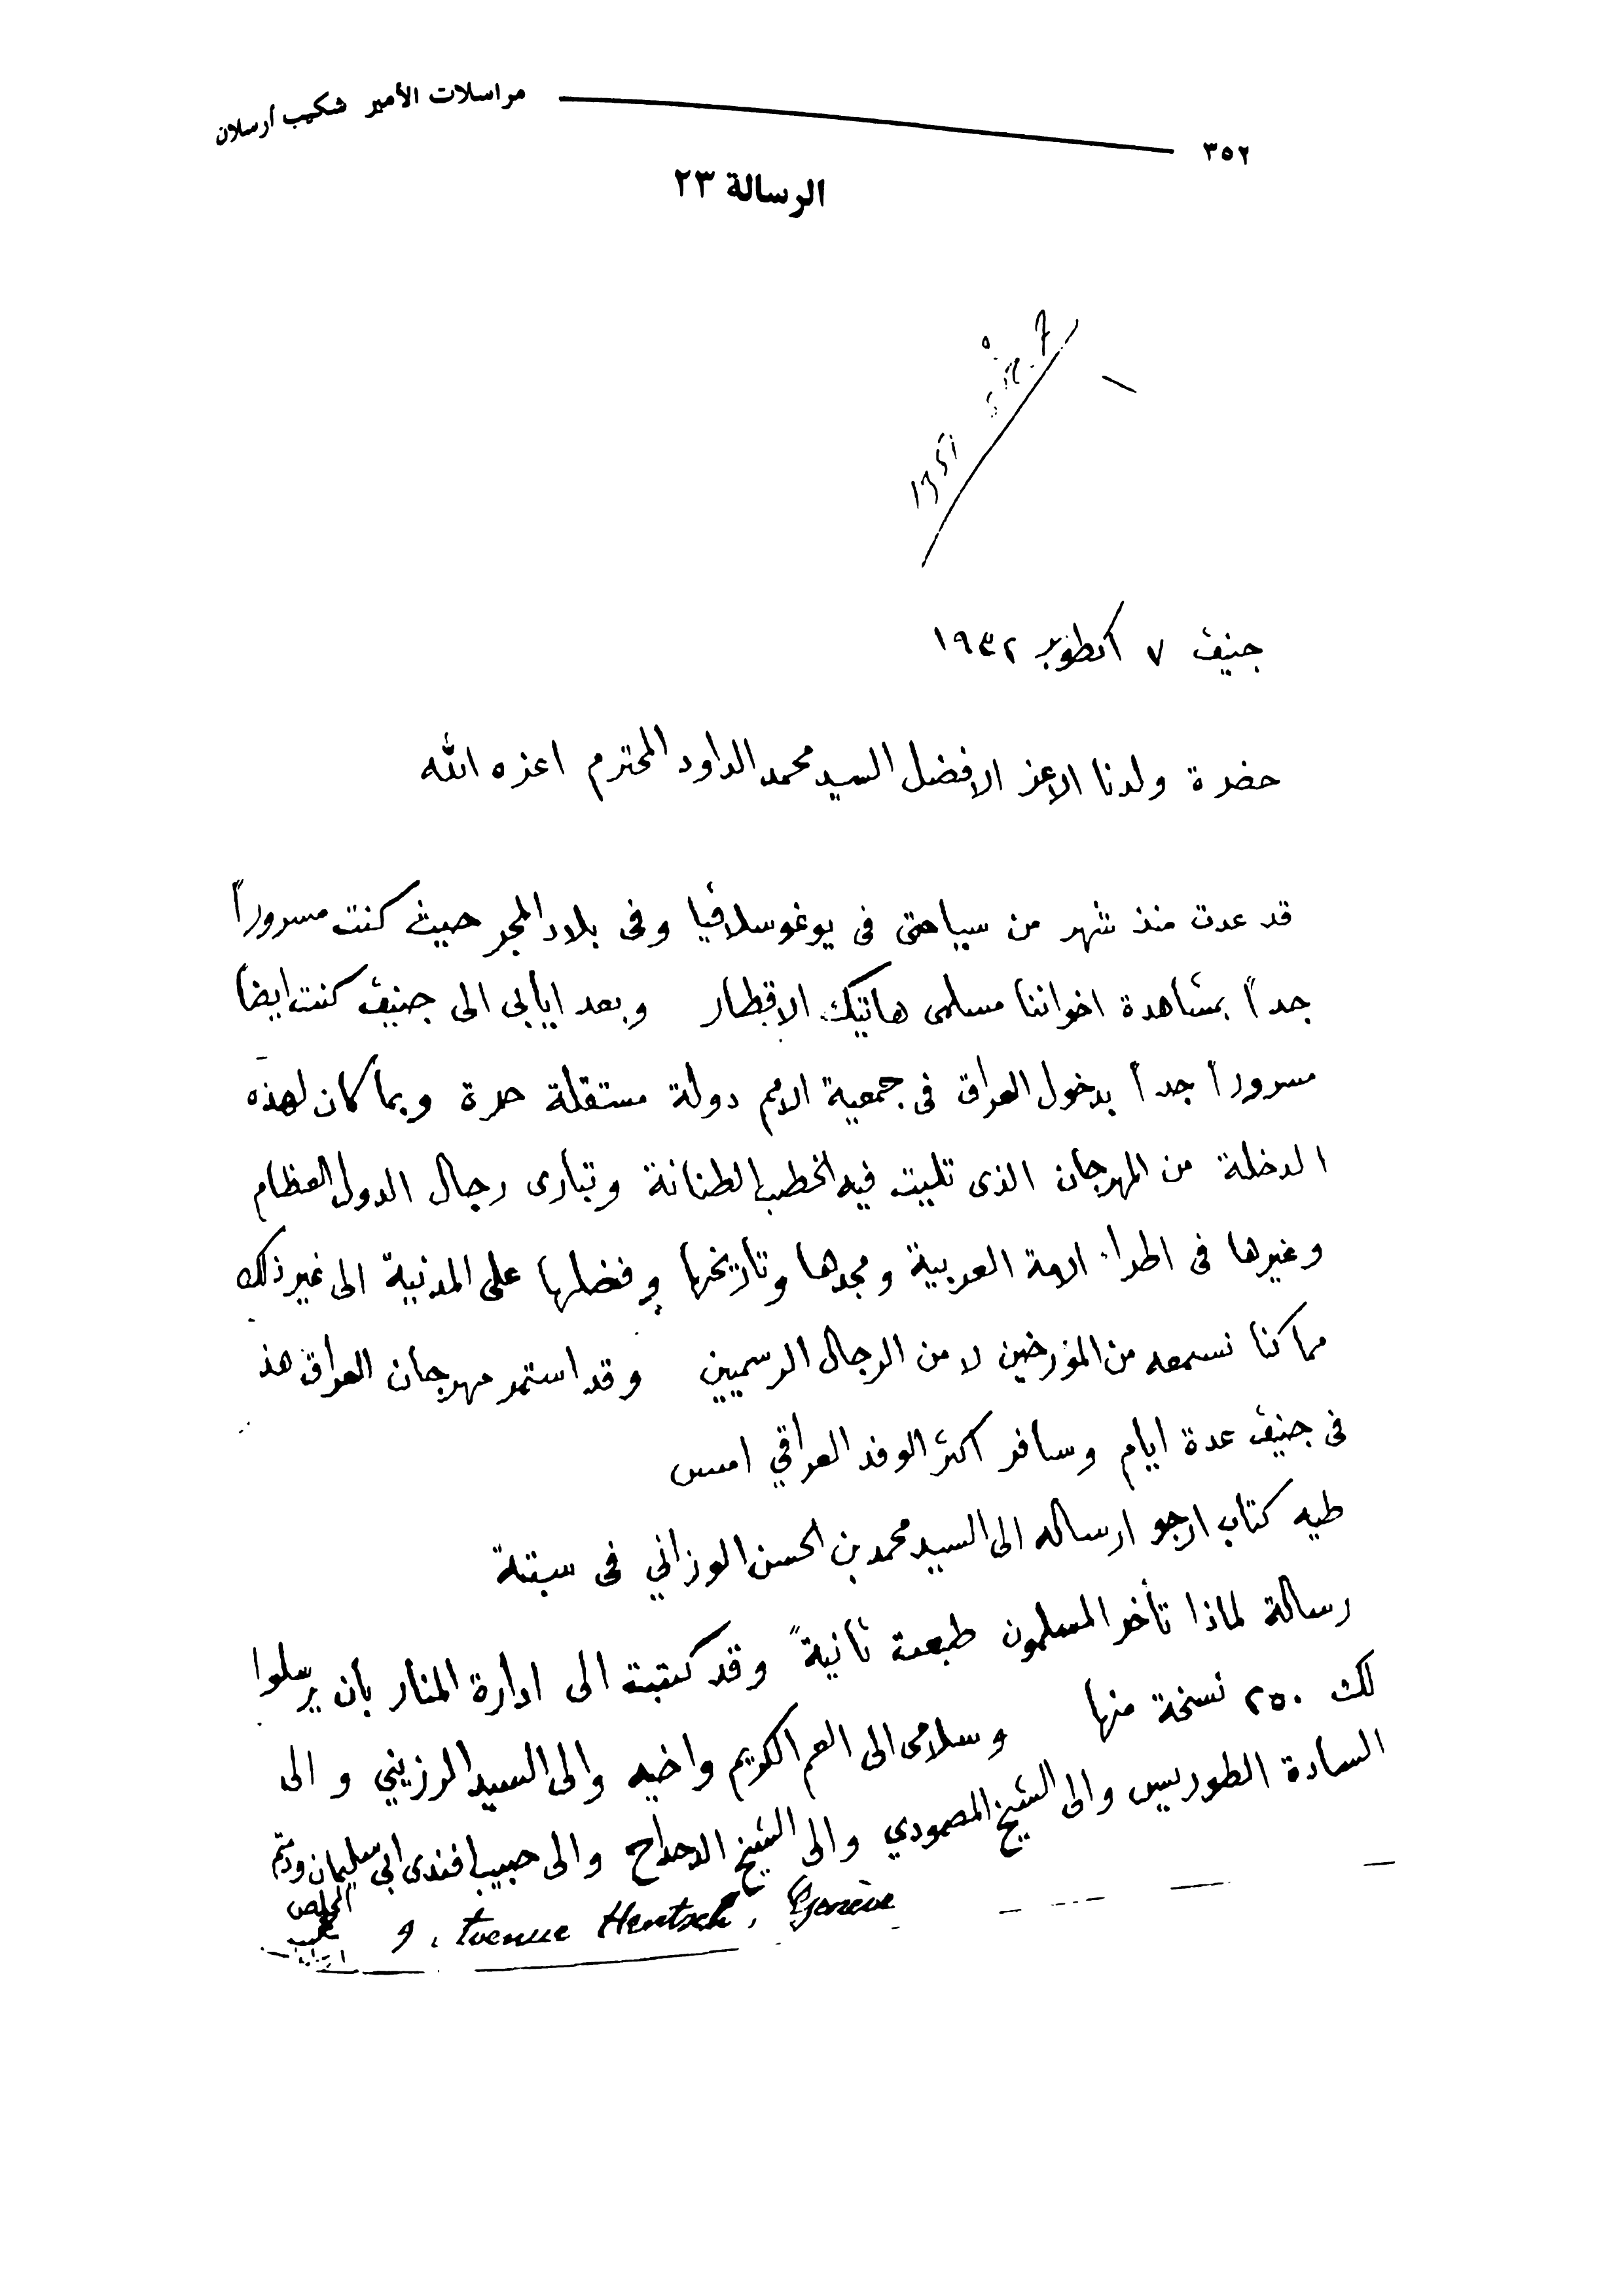 ٣٥٢ مراسلات الأمير شكيب أرسلان
الرسالة ٢٣
1351
جنيف ٧ اكطوبر ١٩٣٢
حضرة ولدنا الاعز الافضل السيد محمد الداود المحترم اعزه الله
قد عدت منذ شهر من سياحتى فى يوغوسلافيا وفى بلاد المجر حيث كنت مسروراً
جداً بمشاهدة اخواننا مسلمى هاتيك الاقطار وبعد ايابي الى جنيف كنت ايضاً
مسروراً جداً بدخول العراق فى جمعية الامم دولة مستقلة حرة وبما كان لهذه
الدخلة من المهرجان الذى تليت فيه الخطب الطنانة وتبارى رجال الدول العظام
وغيرها فى اطراء الامة العربية ومجدها وتاريخها وفضلها على المدنية الى غير ذلك
مما كنا نسمعه من المؤرخين لا من الرجال الرسميين وقد استمر مهرجان العراق هذ
فى جنيف عدة ايام وسافر اكثر الوفد العراقي امس
طيه كتاب ارجو ارساله الى السيد محمد بن الحسن الوزاني فى سبتة
رسالة لماذا تأخر المسلمون طبعت ثانيةً وقد كتبت الى ادارة المنار بأن يرسلوا
لك ٢٥٠ نسخة منها وسلامى الى العم الكريم واخيه والى السيد الرزيني والى
السادة الطوريس والى الشيخ المصمودي والى الشيخ الدحداح والى حبيب افندى ابي سليمان ودمتم
المخلص
شكيب ارسلان
9, Avenue Hentsch, Genève